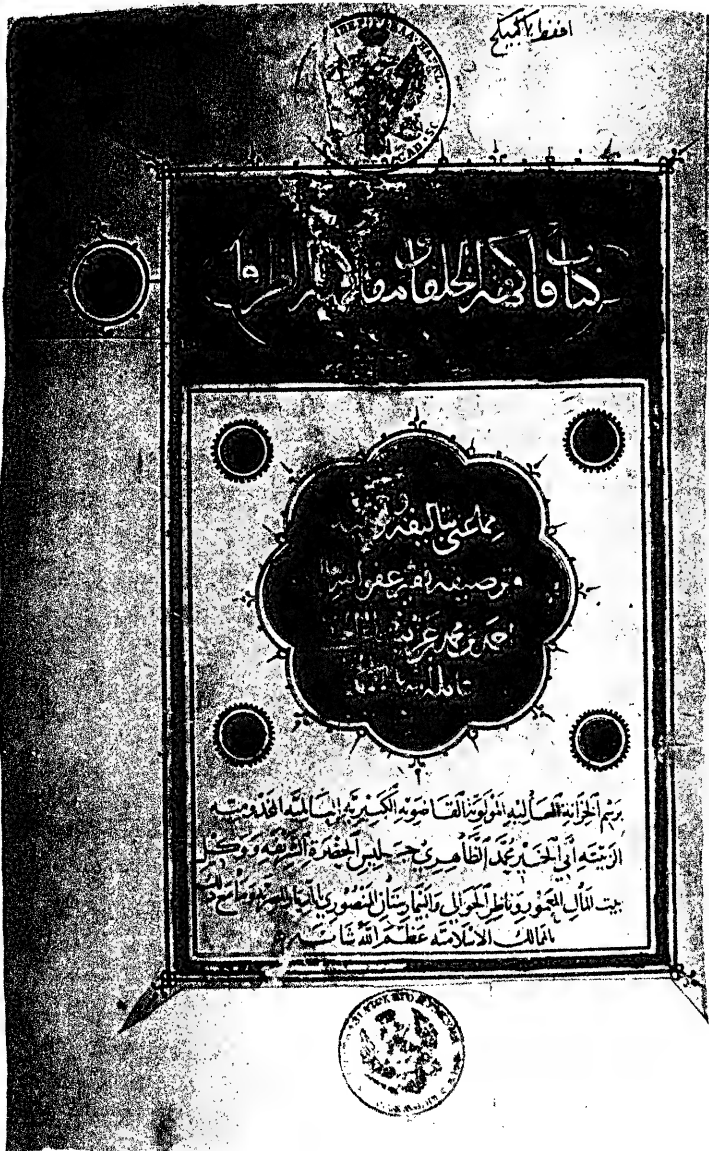 يا كبيكج
كتاب فاكهة الخلفاء ومفاكهة الظرفاء
مما عني بتاليفه
وترصيفه فقير عفو الله
احمد بن محمد عربشاه
عامله الله
برسم الخزانة العالية المولوية القاضوية الكبيرية العالمية المخدومية
الزينية أبي الخير محمد الظاهري جليس الحضرة الشريفة ووكيل
بيت المال المعمور وناظر الجوالي والبيمارستان المنصوري بالديار المصرية وما مع ذلك
بالممالك الاسلامية عظم الله شانه